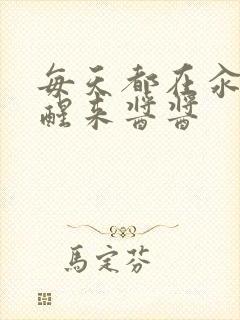 每天都在汆
醒来酱酱
馬定芬